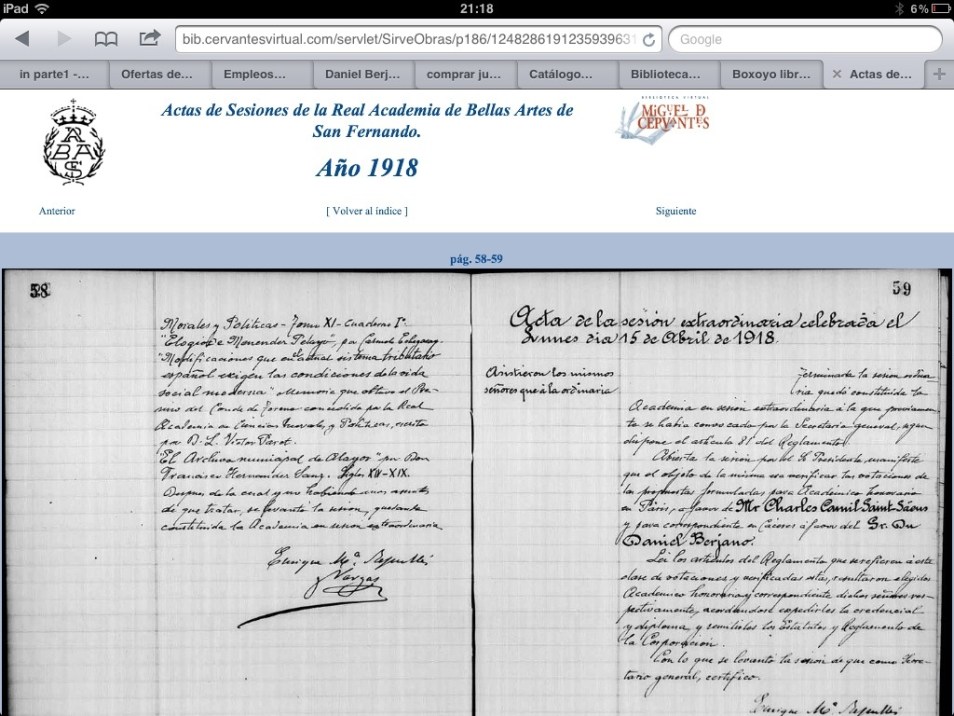 iPad
21:18
6%
bib.cervantesvirtual.com/servlet/SirveObras/p186/1248286191235939631
Google
in parte1 -...
Ofertas de...
Empleos...
Daniel Berj...
comprar ju...
Catálogo...
Biblioteca...
Boxoyo libr...
Actas de...
ABAS
Actas de Sesiones de la Real Academia de Bellas Artes de
San Fernando.
Año 1918
BIBLIOTECA VIRTUAL
MIGUEL DE
CERVANTES
Anterior
[ Volver al índice ]
Siguiente
pág. 58-59
58
Morales y Políticas - Tomo XI - Cuaderno 1º
"Elogio de Menendez Pelayo, por
"Modificaciones que en actual sistema tributario
español exigen las condiciones de la vida
social moderna" Memoria que obtuvo el Pre-
mio del Conde de concedido por la Real
Academia en Ciencias Morales y Políticas, escrita
por D. L. Victor Paret.
"El Archivo municipal de Alayor" por Don
Francisco Hernandez Sanz. Siglos XIV-XIX.
Despues de lo cual y no habiendo otros asuntos
de que tratar, se levantó la sesion, quedando
constituida la Academia en sesion extraordinaria
Enrique Mª Repullés
y Vargas
59
Acta de la sesión extraordinaria celebrada el
Lunes dia 15 de Abril de 1918.
Asistieron los mismos
señores que á la ordinaria
Terminada la sesion ordina-
ria quedó constituida la
Academia en sesion extraordinaria á la que previamen-
te se habia convocado por la Secretaria general, segun
dispone el articulo 81 del Reglamento.
Abierta la sesión por el Sr. Presidente, manifestó
que el objeto de la misma era verificar las votaciones de
las propuestas formuladas para Académico honorario
en Paris, a favor de Mr Charles Camil Saint-Säens
y para correspondiente en Cáceres á favor del Sr. Dn
Daniel Berjano.
Leí los articulos del Reglamento que se refieren á esta
clase de votaciones y verificadas estas, resultaron elegidos
Academico honorario y correspondiente dichos señores res-
pectivamente, acordandose expedirles la credencial
y diploma, y remitirles los Estatutos y Reglamento de
la Corporación.
Con lo que se levantó la sesion de que como Secre-
tario general, certifico.
Enrique Mª Repullés